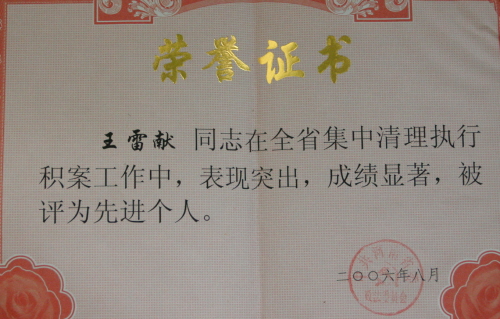 荣誉证书
王雷献 同志在全省集中清理执行
积案工作中，表现突出，成绩显著，被
评为先进个人。
二〇〇六年八月